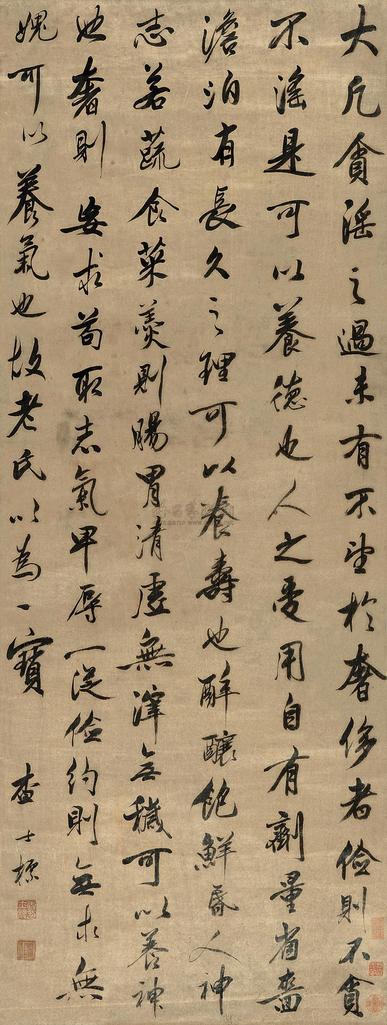 大凡貪淫之過未有不於奢侈者儉則不貪
不淫是可以養德也人之受用自有劑量省嗇
澹泊有長久之理可以養壽也醉醲飽鮮昏人神
志若蔬食菜羹則腸胃清虛無滓無穢可以養神
也奢則妄求苟取志氣卑辱一從儉約則無求無
愧可以養氣也故老氏以為一寶 查士標